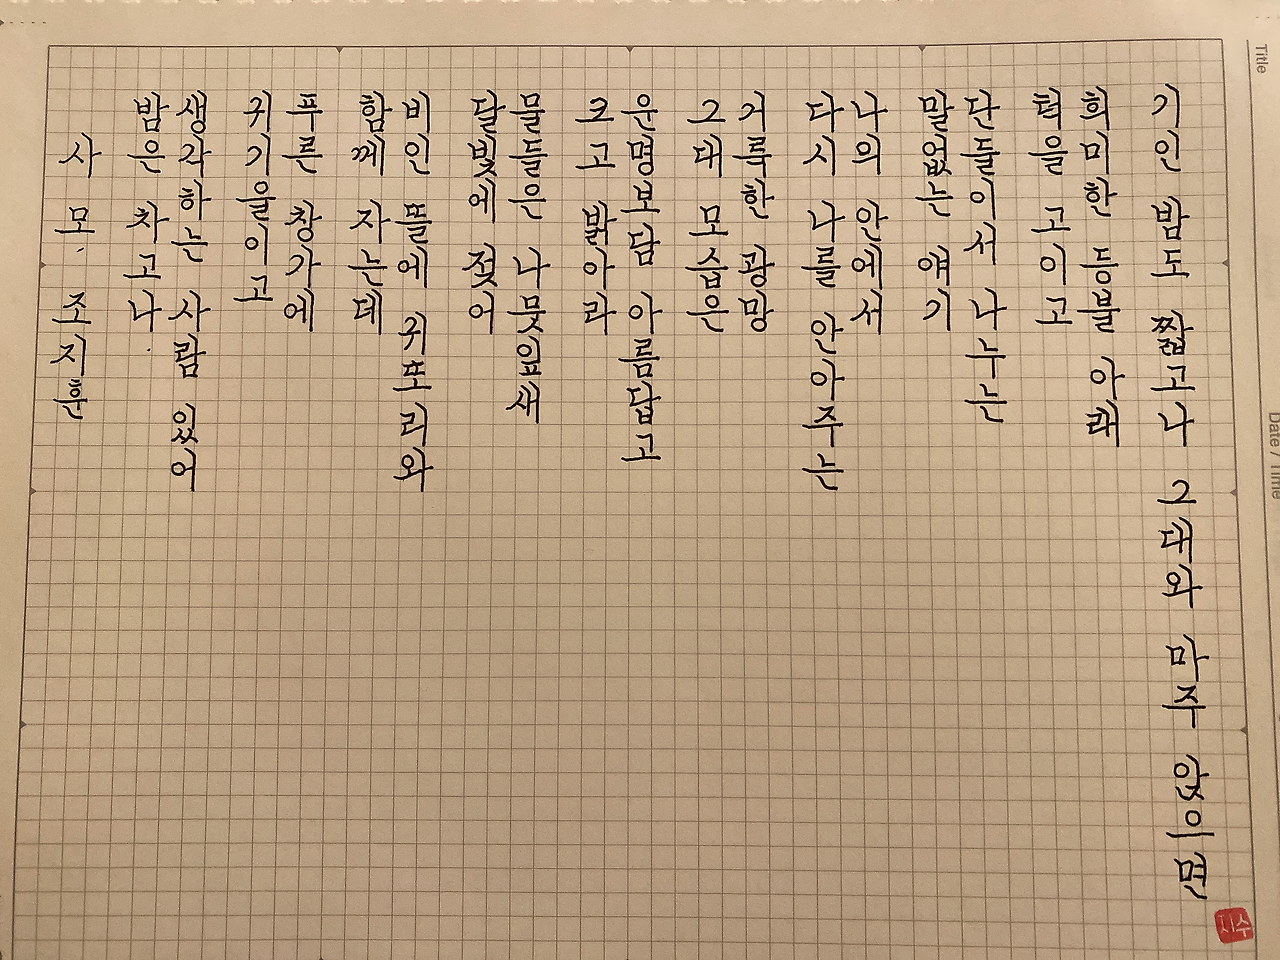 기인 밤도 짧고나 그대와 마주 앉으면
희미한 등불 아래
턱을 고이고
단둘이서 나누는
말없는 얘기
나의 안에서
다시 나를 안아주는
거룩한 광망
그대 모습은
운명보담 아름답고
크고 밝아라
물들은 나뭇잎새
달빛에 젖어
비인 뜰에 귀또리와
함께 자는데
푸른 창가에
귀기울이고
생각하는 사람 있어
밤은 차고나.
사모. 조지훈
Title
Date / Time